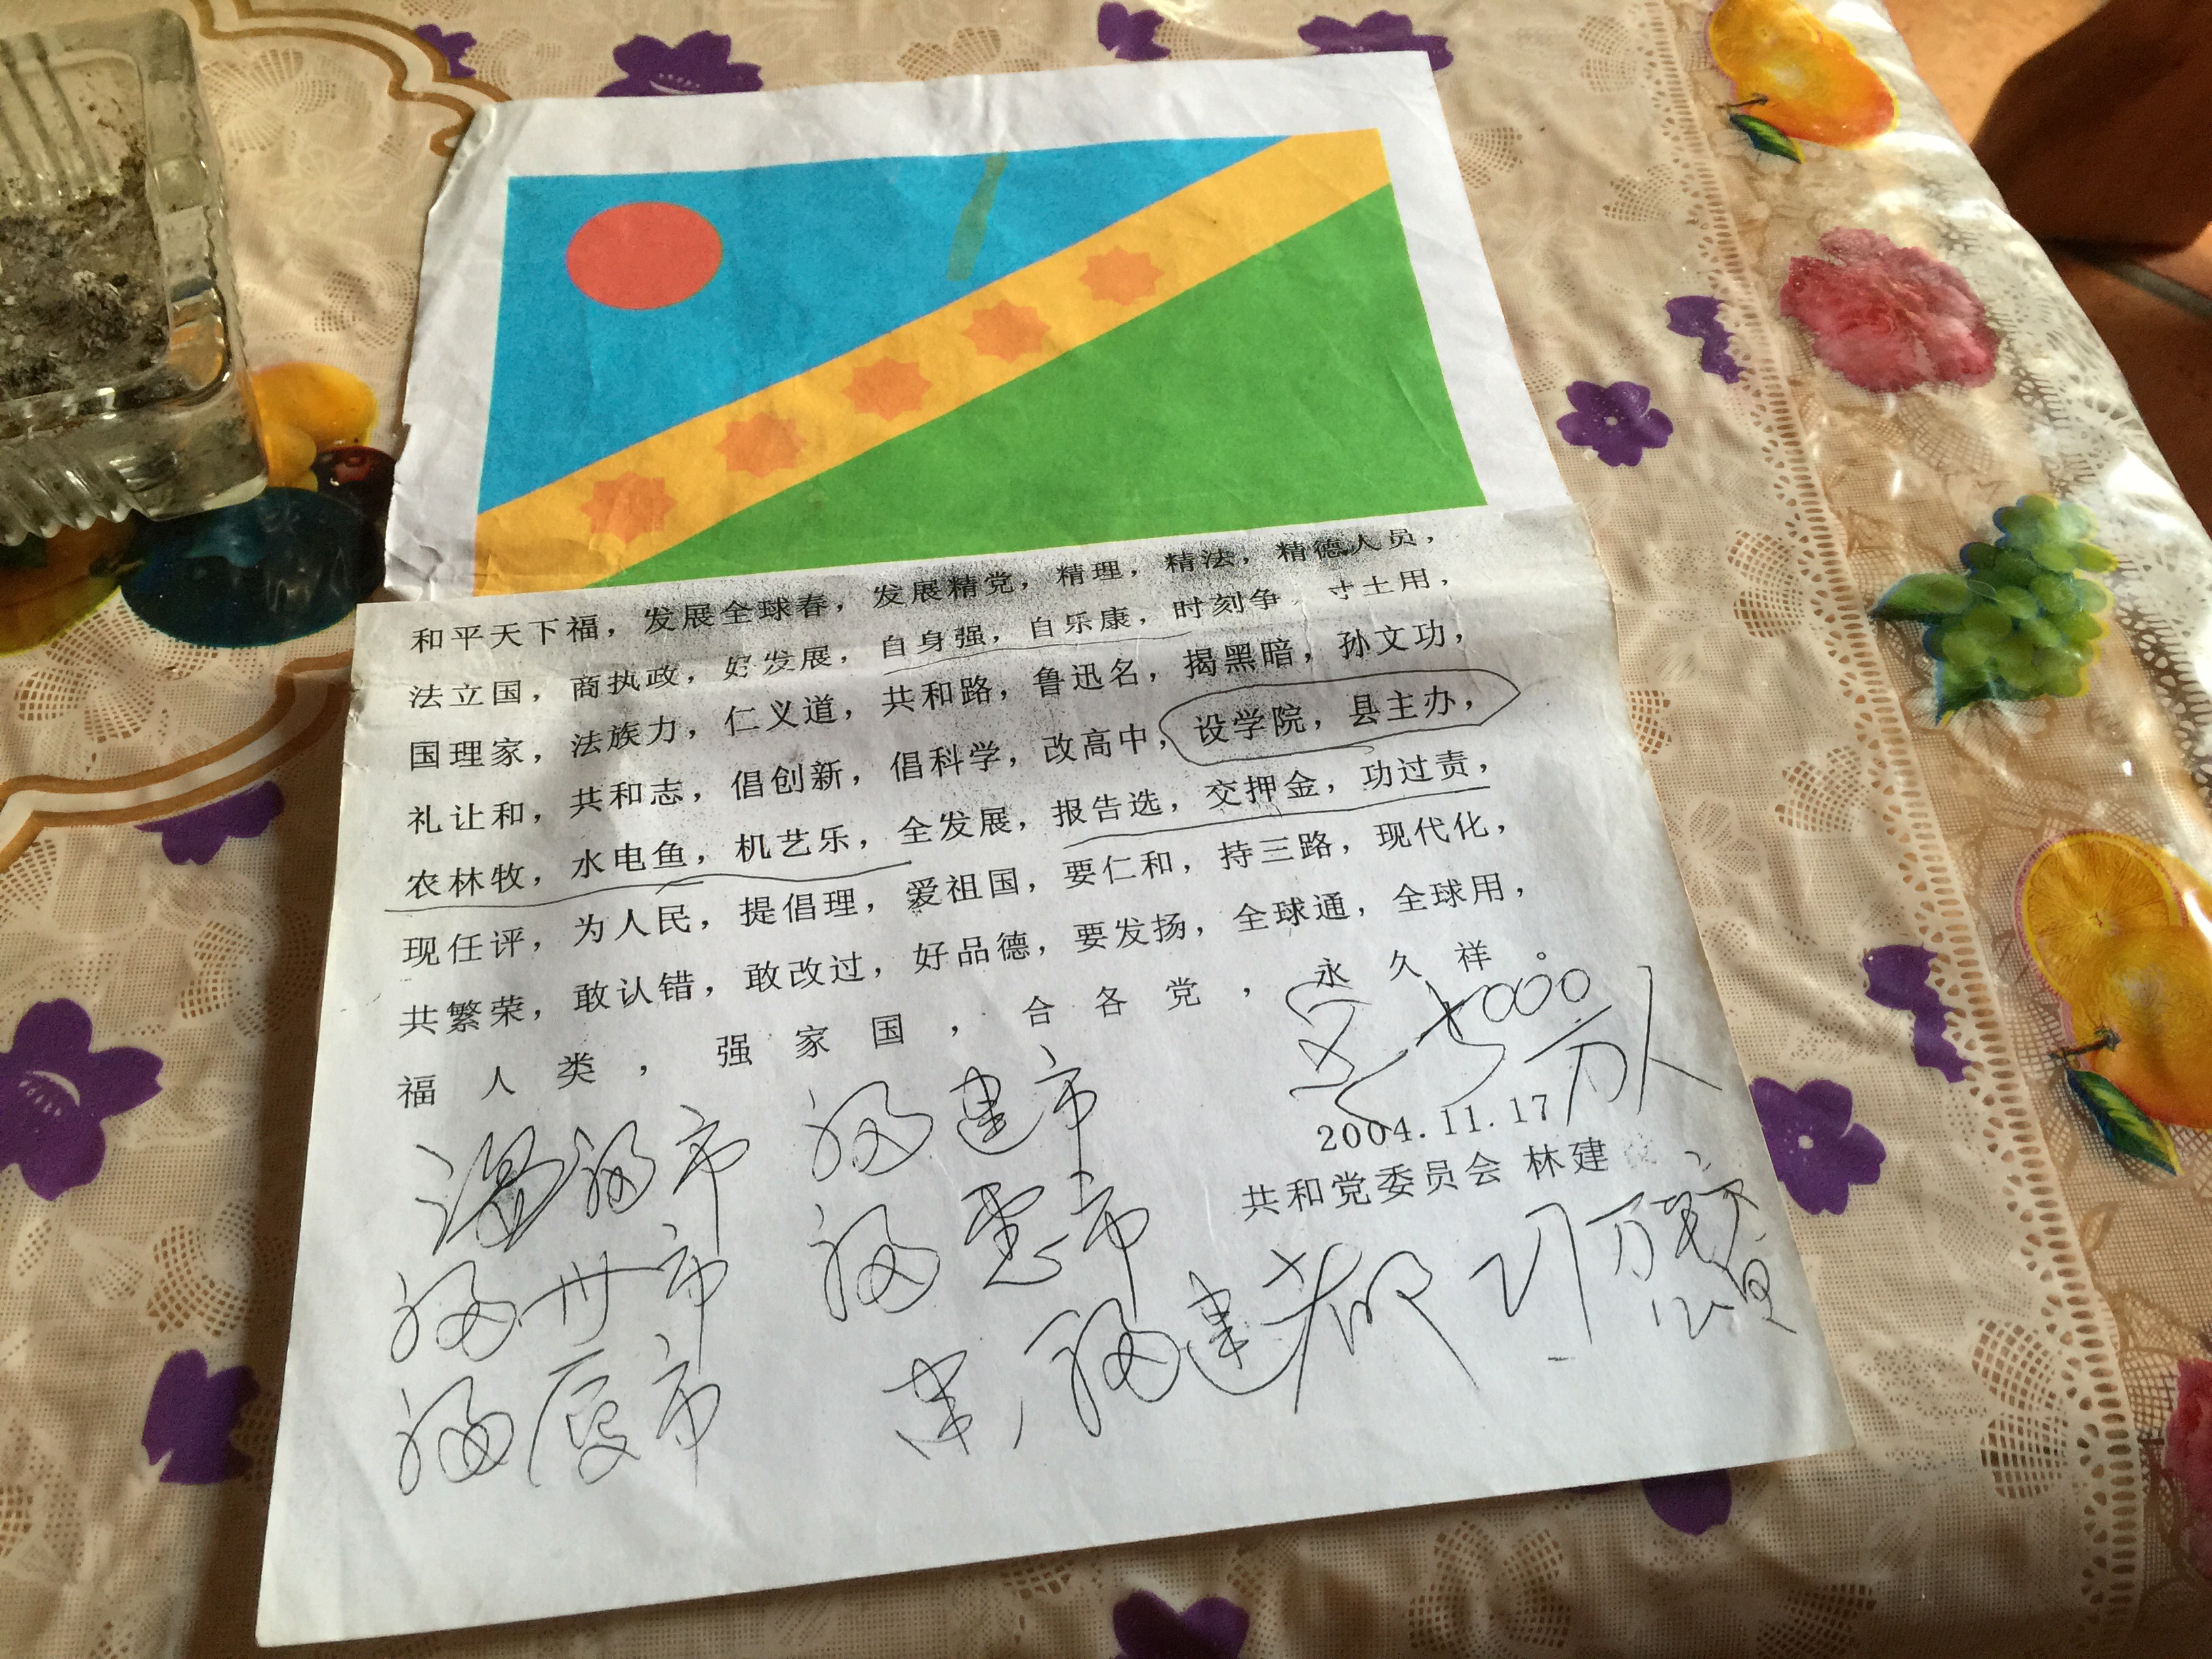 和平天下福，发展全球春，发展精党，精理，精法，精德人员，
法立国，商执政，好发展，自身强，自乐康，时刻争，寸土用，
国理家，法族力，仁义道，共和路，鲁迅名，揭黑暗，孙文功，
礼让和，共和志，倡创新，倡科学，改高中，设学院，县主办，
农林牧，水电鱼，机艺乐，全发展，报告选，交押金，功过责，
现任评，为人民，提倡理，爱祖国，要仁和，持三路，现代化，
共繁荣，敢认错，敢改过，好品德，要发扬，全球通，全球用，
福人类，强家国，合各党，永久祥。
5000
万人
2004.11.17
共和党委员会 林建
温福市 福建市
福州市 福惠市
福厦市 福建都